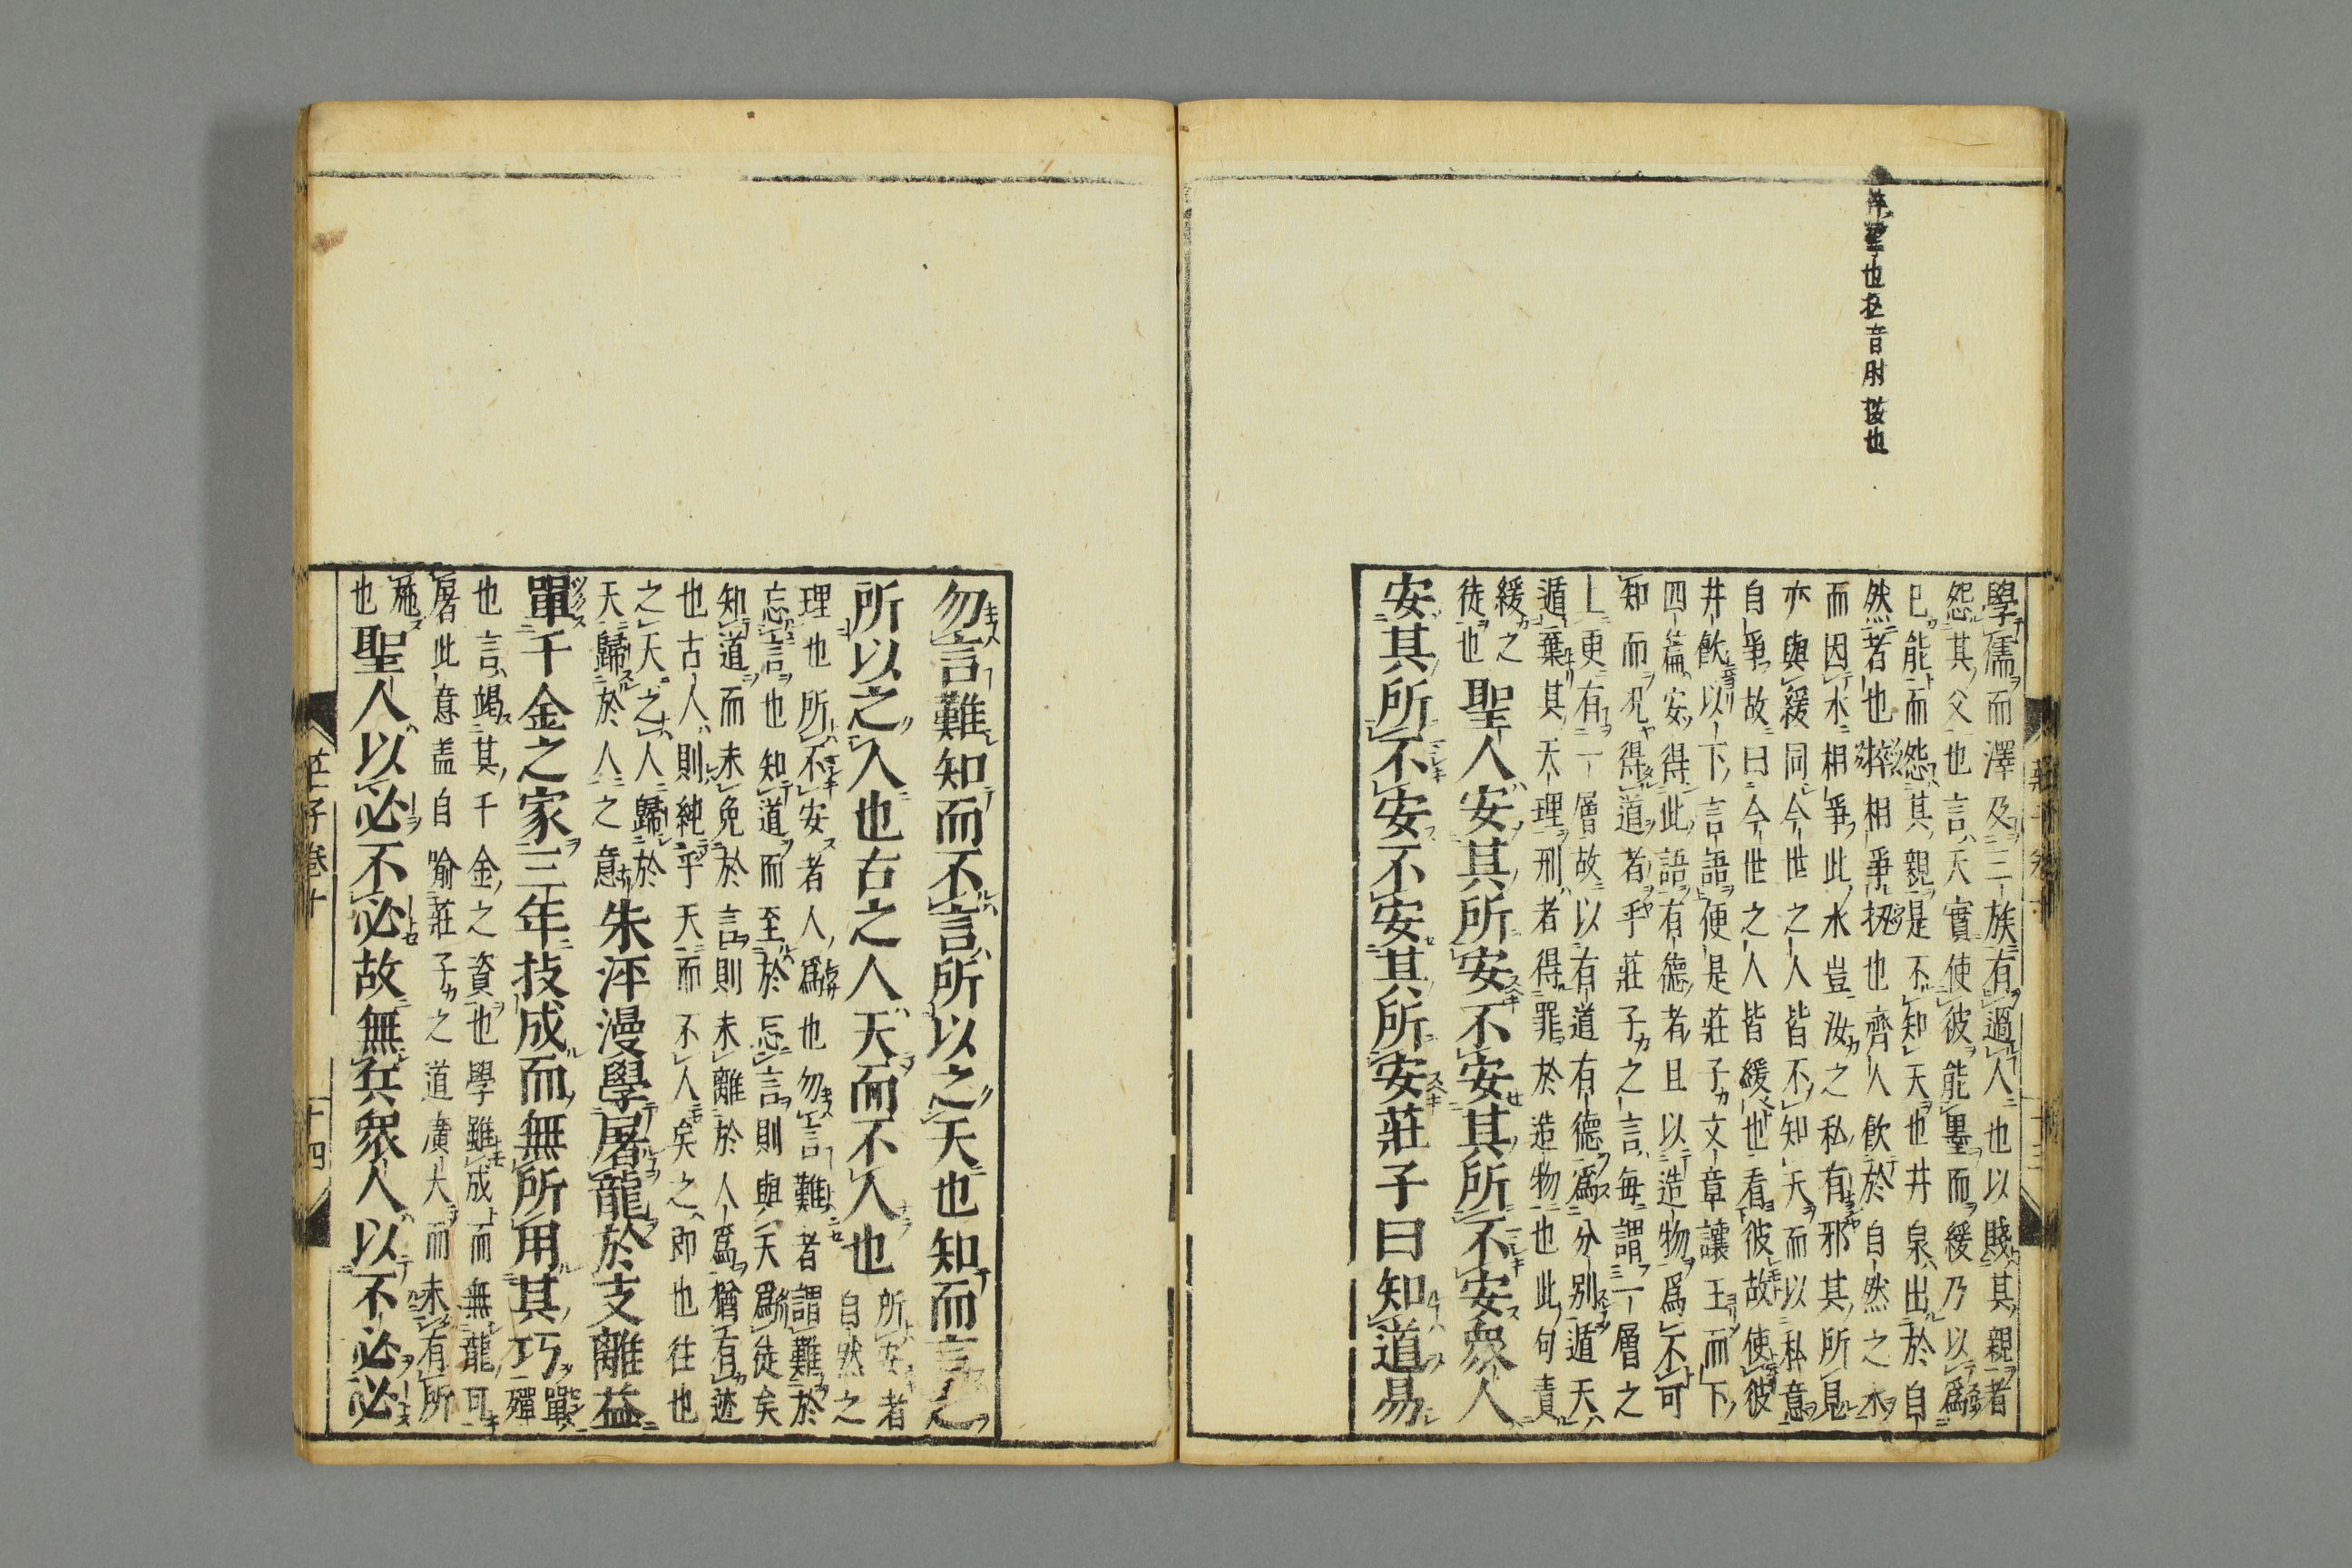 捽
也
音肘
也
學儒而澤及三族有過人也以賤其親者
怨其父也言天實使彼能墨而緩乃以爲
已能而怨其親是不知天也井泉出於自
然者也捽相爭扨也齊人飲於自然之水
而因水相爭此水豈汝之私有邪其所見
亦與緩同今世之人皆不知天而以私意
自爭故曰今世之人皆緩也看彼故使彼
井飲以下言語便是莊子文章讓王而下
四篇安得此語有德者且以造物爲不可
知而况得道者乎莊子之言每謂一層之
上更有一層故以有道有德爲分別遁天
遁棄其天理刑者得罪於造物也此句責
緩之
徒也
聖人安其所安不安其所不安衆人
安其所不安不安其所安莊子曰知道易
莊子 卷十 十三
勿言難知而不言所以之天也知而言之
所以之人也古之人天而不人也
所安者
自然之
理也所不安者人爲也勿言難者謂難於
忘言也知道而至於忘言則與天爲徒矣
知道而未免於言則未離於人爲猶有迹
也古人則純乎天而不人矣之即也往也
之天之人歸於
天歸於人之意
朱泙漫學屠龍於支離益
單千金之家三年技成而無所用其巧
單殫
也言竭其千金之資也學雖成而無龍可
屠此意盖自喻莊子之道廣大而未有所
施
也
聖人以必不必故無兵衆人以不必必
莊子 卷十 十四